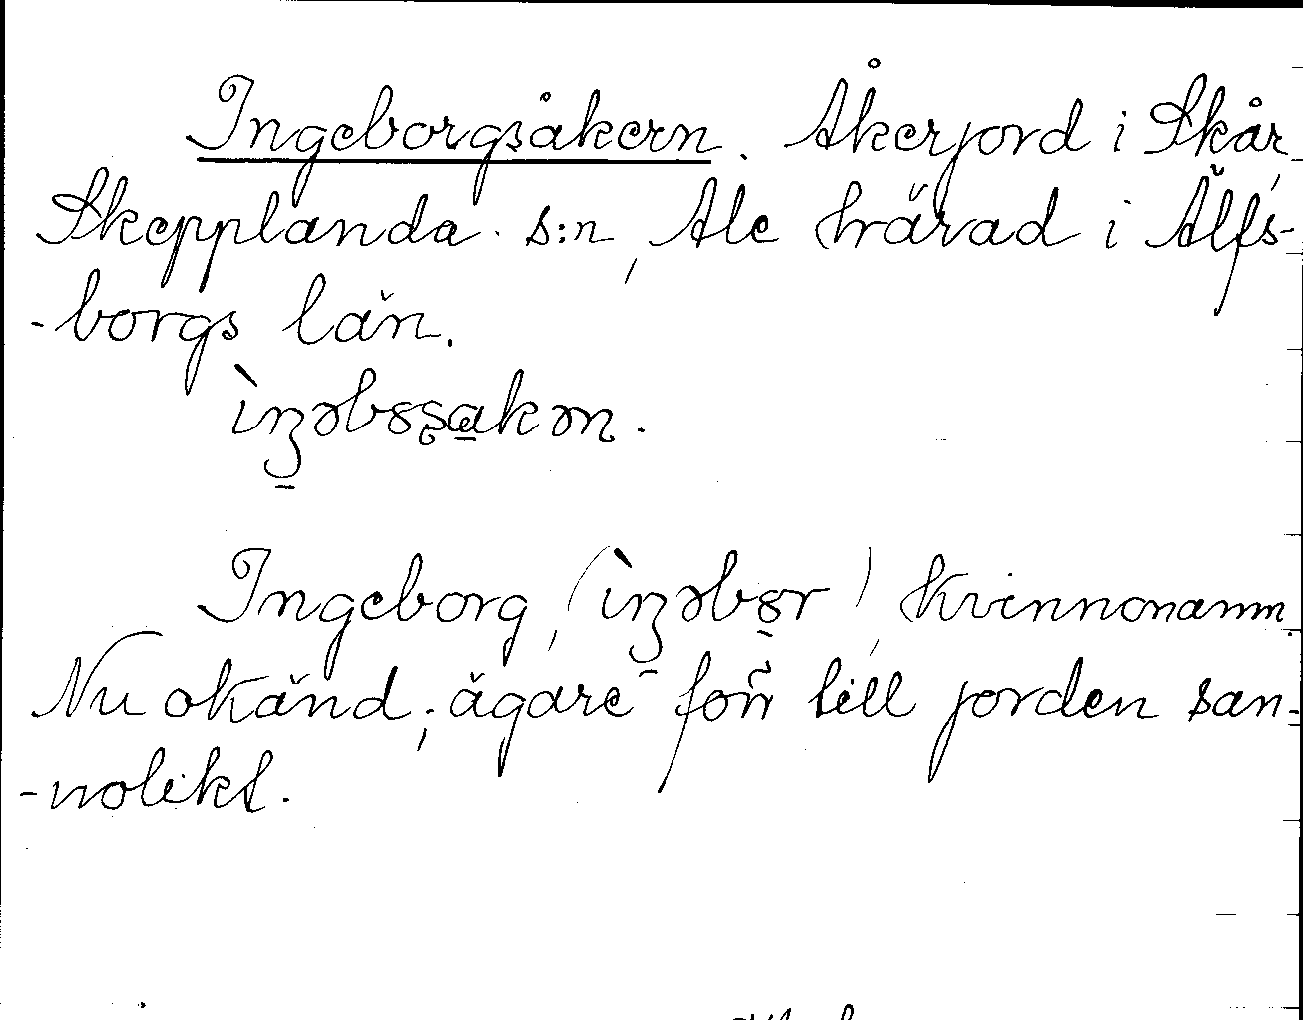 Ingeborgsåkern. Åkerjord i Skår,
Skepplanda s:n, Ale härad i Älfs-
-borgs län.
Ingeborg, ( ) kvinnonamn.
Nu okänd, ägare förr till jorden san-
-nolikt.